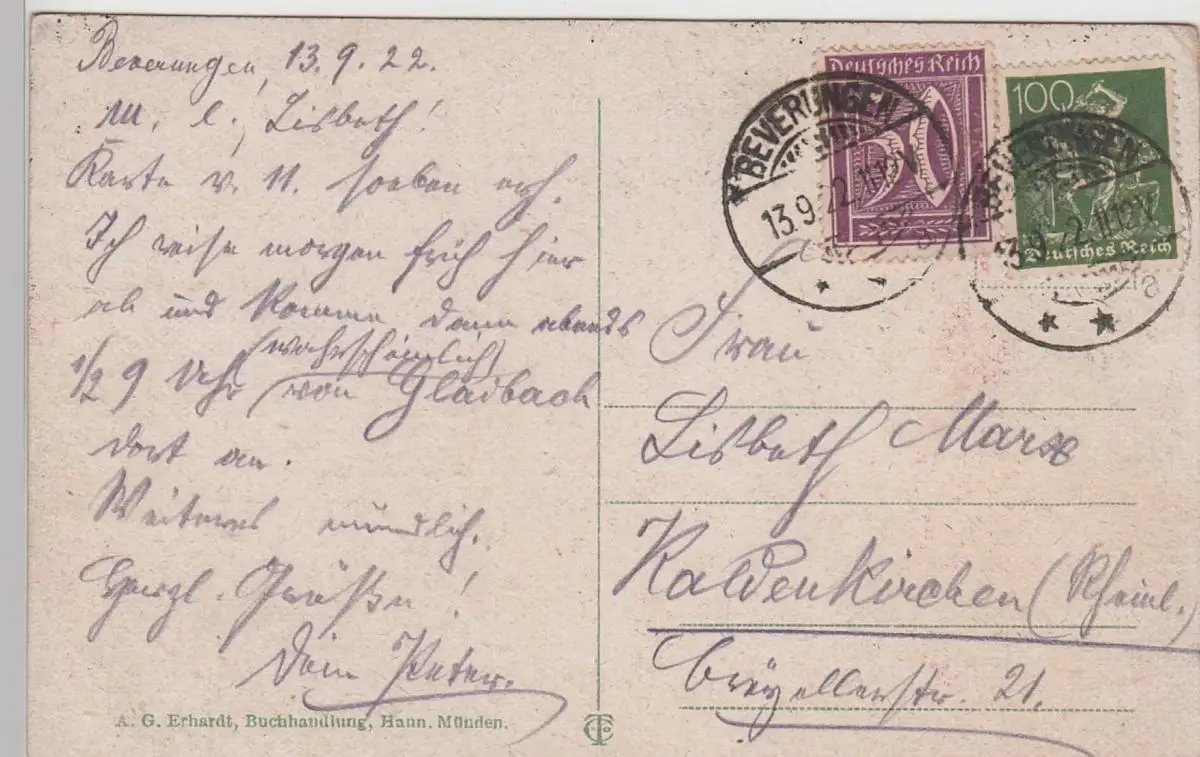 Beverungen, 13.9.22.
M. l. Lisbeth!
Karte v. 11. soeben erh.
Ich reise morgen früh hier
ab und komme dann abends
(wahrscheinlich)
1/2 9 Uhr von Gladbach
dort an.
Weiteres mündlich.
Herzl. Grüße!
Dein Peter.
A. G. Erhardt, Buchhandlung, Hann. Münden.
Deutsches Reich
50
100
Deutsches Reich
BEVERUNGEN
13.9.22.11-12V
BEVERUNGEN
13.9.22.11-12V
a
Frau
Lisbeth Marx
Kaldenkirchen (Rheinl.)
Breyellerstr. 21.